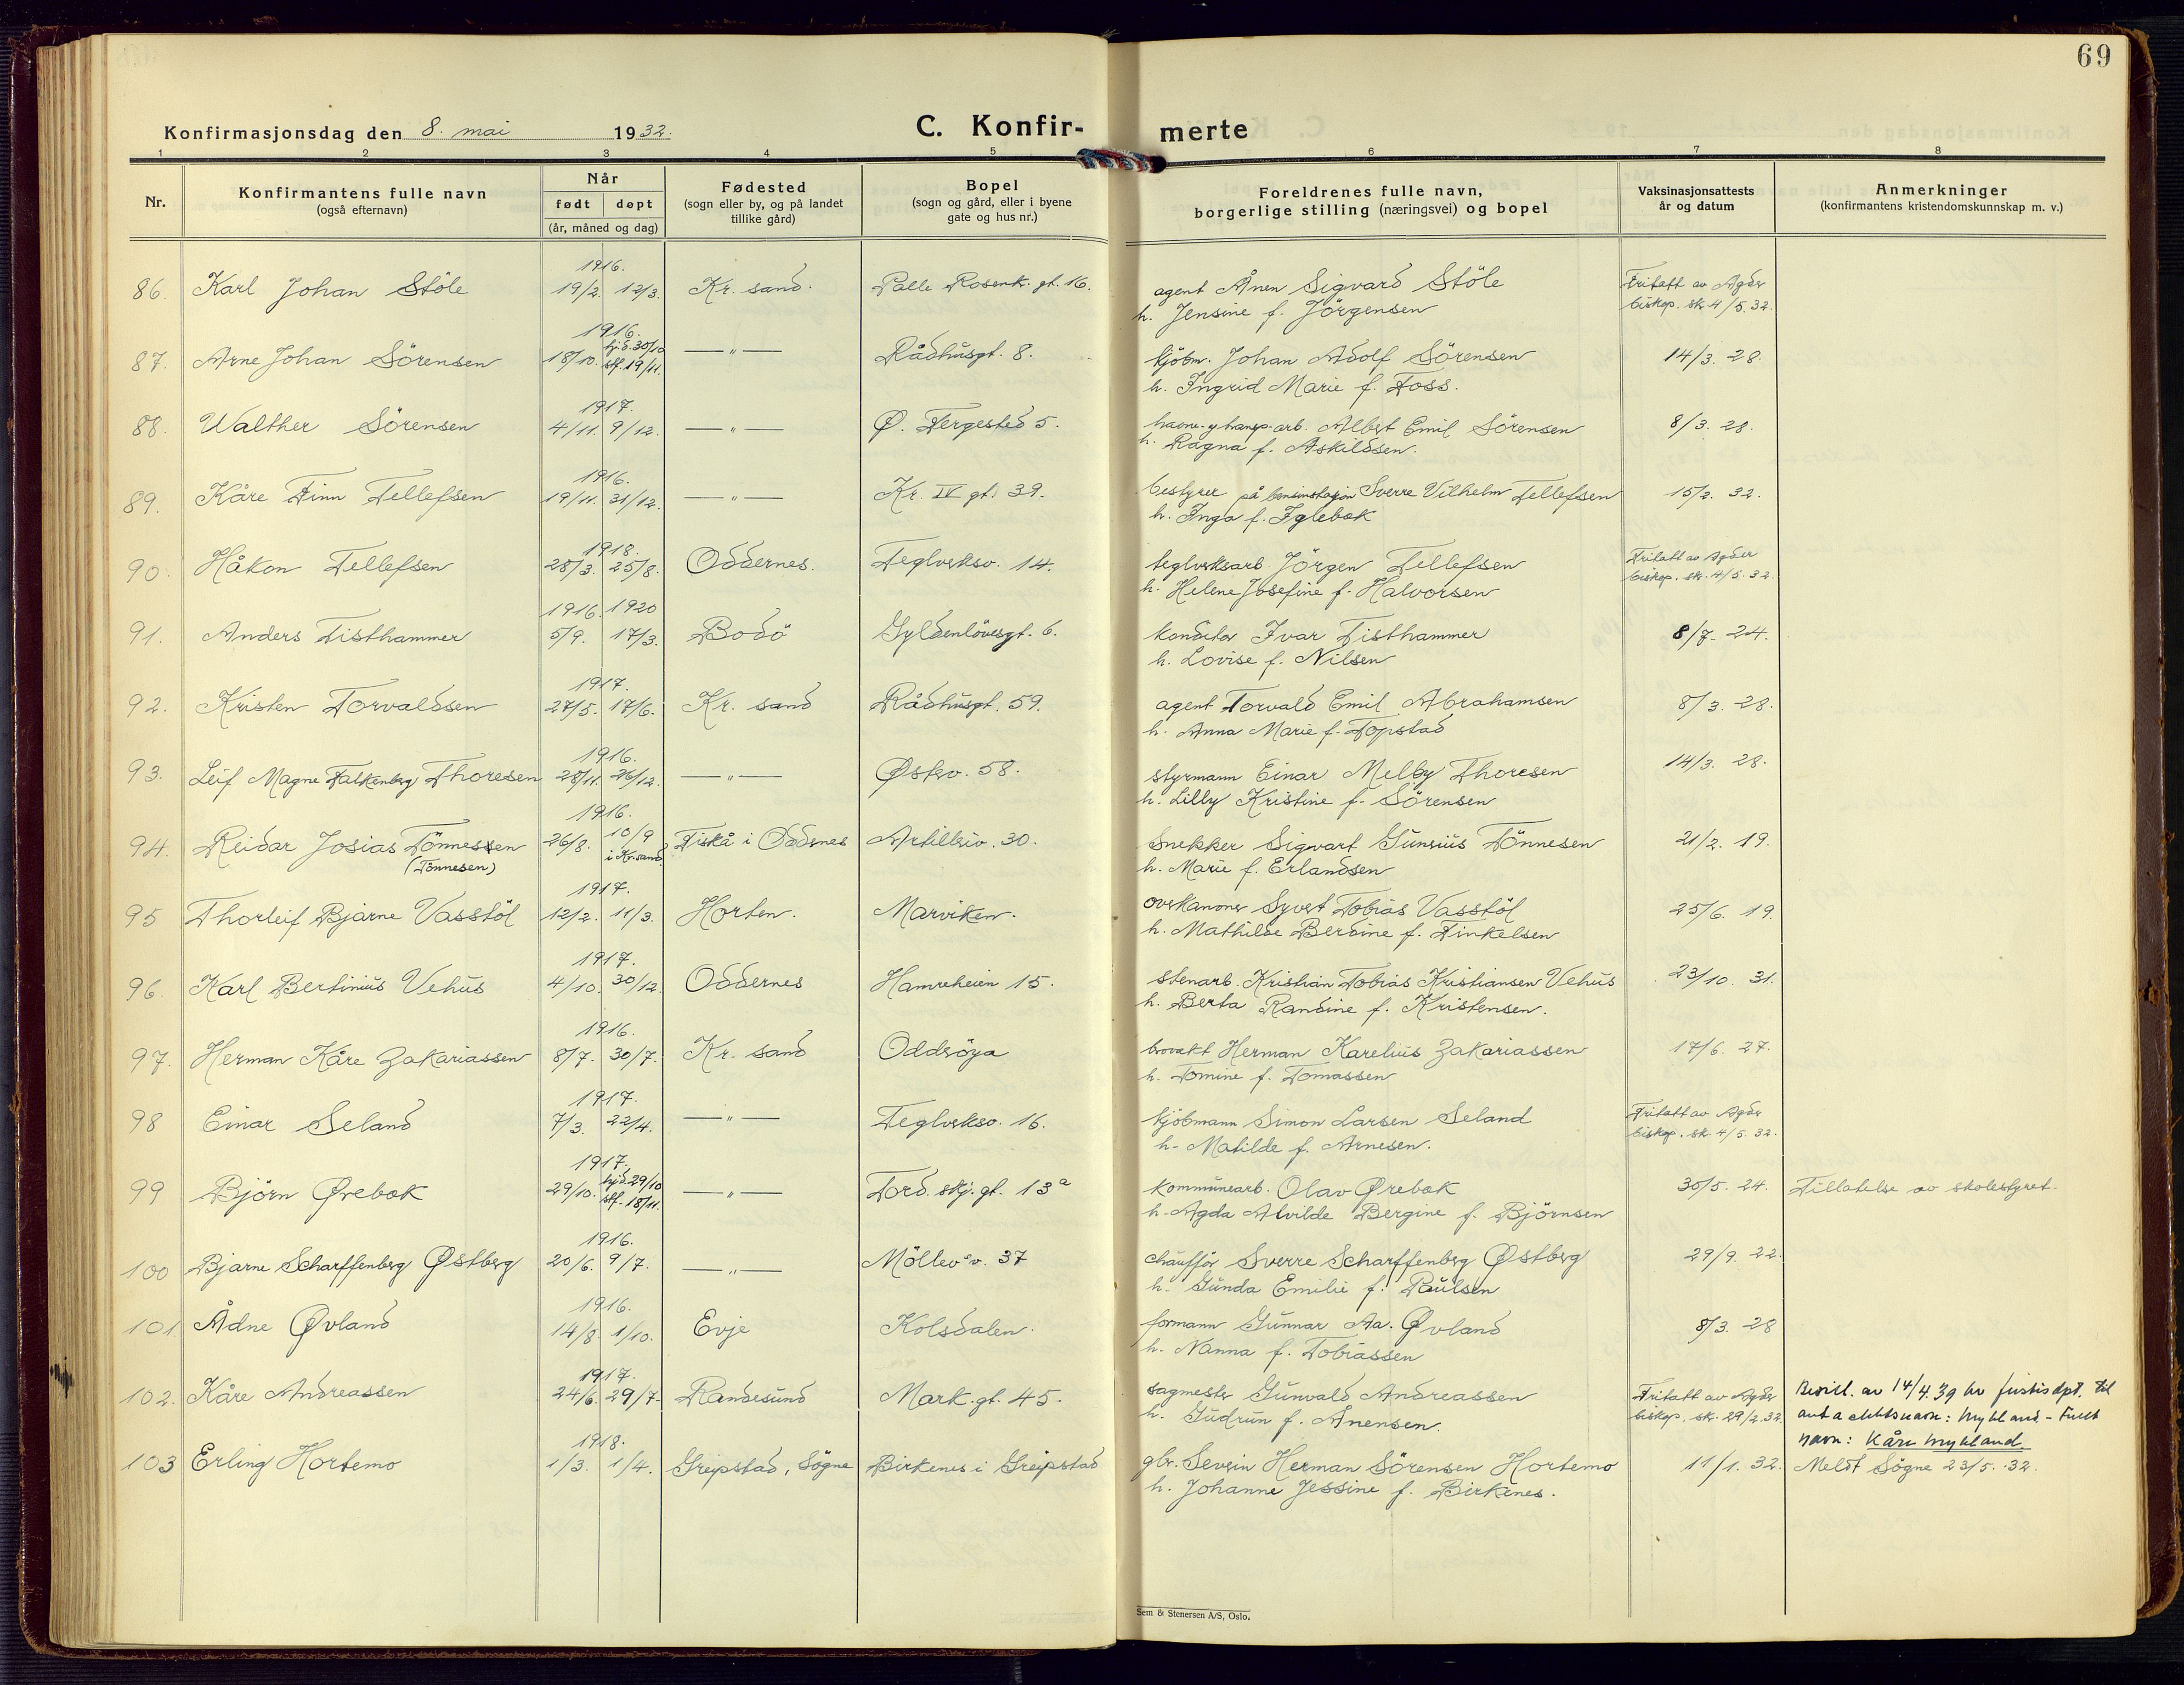 69
Konfirmasjonsdag den 8. mai 1932.
C. Konfir- merte
1 2 3 4 5 6 7 8
Nr.
Konfirmantens fulle navn
(også efternavn)
Når
født døpt
(år, måned og dag)
Fødested
(sogn eller by, og på landet
tillike gård)
Bopel
(sogn og gård, eller i byene
gate og hus nr.)
Foreldrenes fulle navn,
borgerlige stilling (næringsvei) og bopel
Vaksinasjonsattests
år og datum
Anmerkninger
(konfirmantens kristendomskunnskap m. v.)
1916.
86. Karl Johan Stöle 19/2. 12/3. Kr. sand. Palle Rosenk. gt. 16. agent Ånen Sigvard Stöle Fritatt av Agder
h. Jensine f. Jörgensen biskop. skr. 4/5. 32.
1916.
87. Arne Johan Sörensen 18/10. hjd. 30/10 stf. 19/11. —"— Rådhusgt. 8. kjöbm. Johan Adolf Sörensen 14/3. 28.
h. Ingrid Marie f. Foss.
1917.
88. Walther Sörensen 4/11. 9/12. —"— Ø. Fergested 5. havne- og transp. arb. Albert Emil Sörensen 8/3. 28.
h. Ragna f. Askildsen.
1916.
89. Kåre Finn Tellefsen 19/11. 31/12. —"— Kr. IV gt. 39. bestyrer på bensinstasjon Sverre Vilhelm Tellefsen 15/2. 32.
h. Inga f. Iglebæk
1918.
90. Håkon Tellefsen 28/3. 25/8. Oddernes. Teglverksv. 14. teglverksarb. Jörgen Tellefsen Fritatt av Agder
h. Helene Josefine f. Halvorsen biskop. skr. 4/5. 32.
1916. 1920
91. Anders Tisthammer 5/9. 17/3. Bodö Gyldenlövesgt. 6. konditor Ivar Tisthammer 8/7. 24.
h. Lovise f. Nilsen
1917.
92. Kristen Torvaldsen 27/5. 17/6. Kr. sand Rådhusgt. 59. agent Torvald Emil Abrahamsen 8/3. 28.
h. Anna Marie f. Topstad
1916.
93. Leif Magne Falkenberg Thoresen 28/11. 26/12. —"— Østerv. 58. styrmann Einar Melby Thoresen 14/3. 28.
h. Lilly Kristine f. Sörensen
1916.
94. Reidar Josias Tönnessen 26/8. 10/9 i Kr.sand. Fiskå i Oddernes Artilleriv. 30. snekker Sigvart Gunvius Tönnesen 21/2. 19.
(Tönnesen) h. Marie f. Erlandsen
1917.
95 Thorleif Bjarne Vasstöl 12/2. 11/3. Horten. Marviken. overkanoner Syvert Tobias Vasstöl 25/6. 19.
h. Mathilde Berdine f. Finkelsen
1917.
96. Karl Bertinius Vehus 4/10. 30/12. Oddernes Hamreheien 15. stenarb. Kristian Tobias Kristiansen Vehus 23/10. 31.
h. Berta Randine f. Kristensen.
1916.
97. Herman Kåre Zakariassen 8/7. 30/7. Kr. sand Odderöya brovakt Herman Karelius Zakariassen 17/6. 27.
h. Tomine f. Tomassen
1917.
98 Einar Seland 7/3. 22/4. —"— Teglverksv. 16. kjöbmann Simon Larsen Seland Fritatt av Agder
h. Matilde f. Arnesen. biskop. sk. 4/5. 32.
1917.
99 Björn Ørebæk 29/10. hjd. 29/10 stf. 18/11. —"— Tord. skj. gt. 13a kommunearb. Olav Ørebæk 30/5. 24. Tillatelse av skolestyret.
h. Agda Alvilde Bergine f. Björnsen
1916.
100 Bjarne Scharffenberg Østberg 20/6. 9/7. —"— Möllev v. 37 chaufför Sverre Scharffenberg Østberg 29/9. 22.
h. Gunda Emilie f. Paulsen
1916.
101 Ådne Øvland 14/8 1/10. Evje Kolsdalen. formann Gunnar Aa. Øvland 8/3. 28
h. Nanna f. Tobiassen
1917.
102. Kåre Andreassen 24/6. 29/7. Randesund Mark. gt. 45. sagmester Gunvald Andreassen Fritatt av Agder Bevill. av 14/4.39 hr justisdpt. til
h. Gudrun f. Anensen. biskop. sk. 29/2. 32. anta slektsnavn: Myhland - Fullt
navn: Kåre Myhland
1918.
103 Erling Hortemo 1/3. 1/4. Greipstad, Sögne Birkenes i Greipstad gbr. Severin Herman Sörensen Hortemo 11/1. 32. Meldt Sögne 23/5. 32.
h. Johanne Jessine f. Birkenes.
Sem & Stenersen A/S, Oslo.